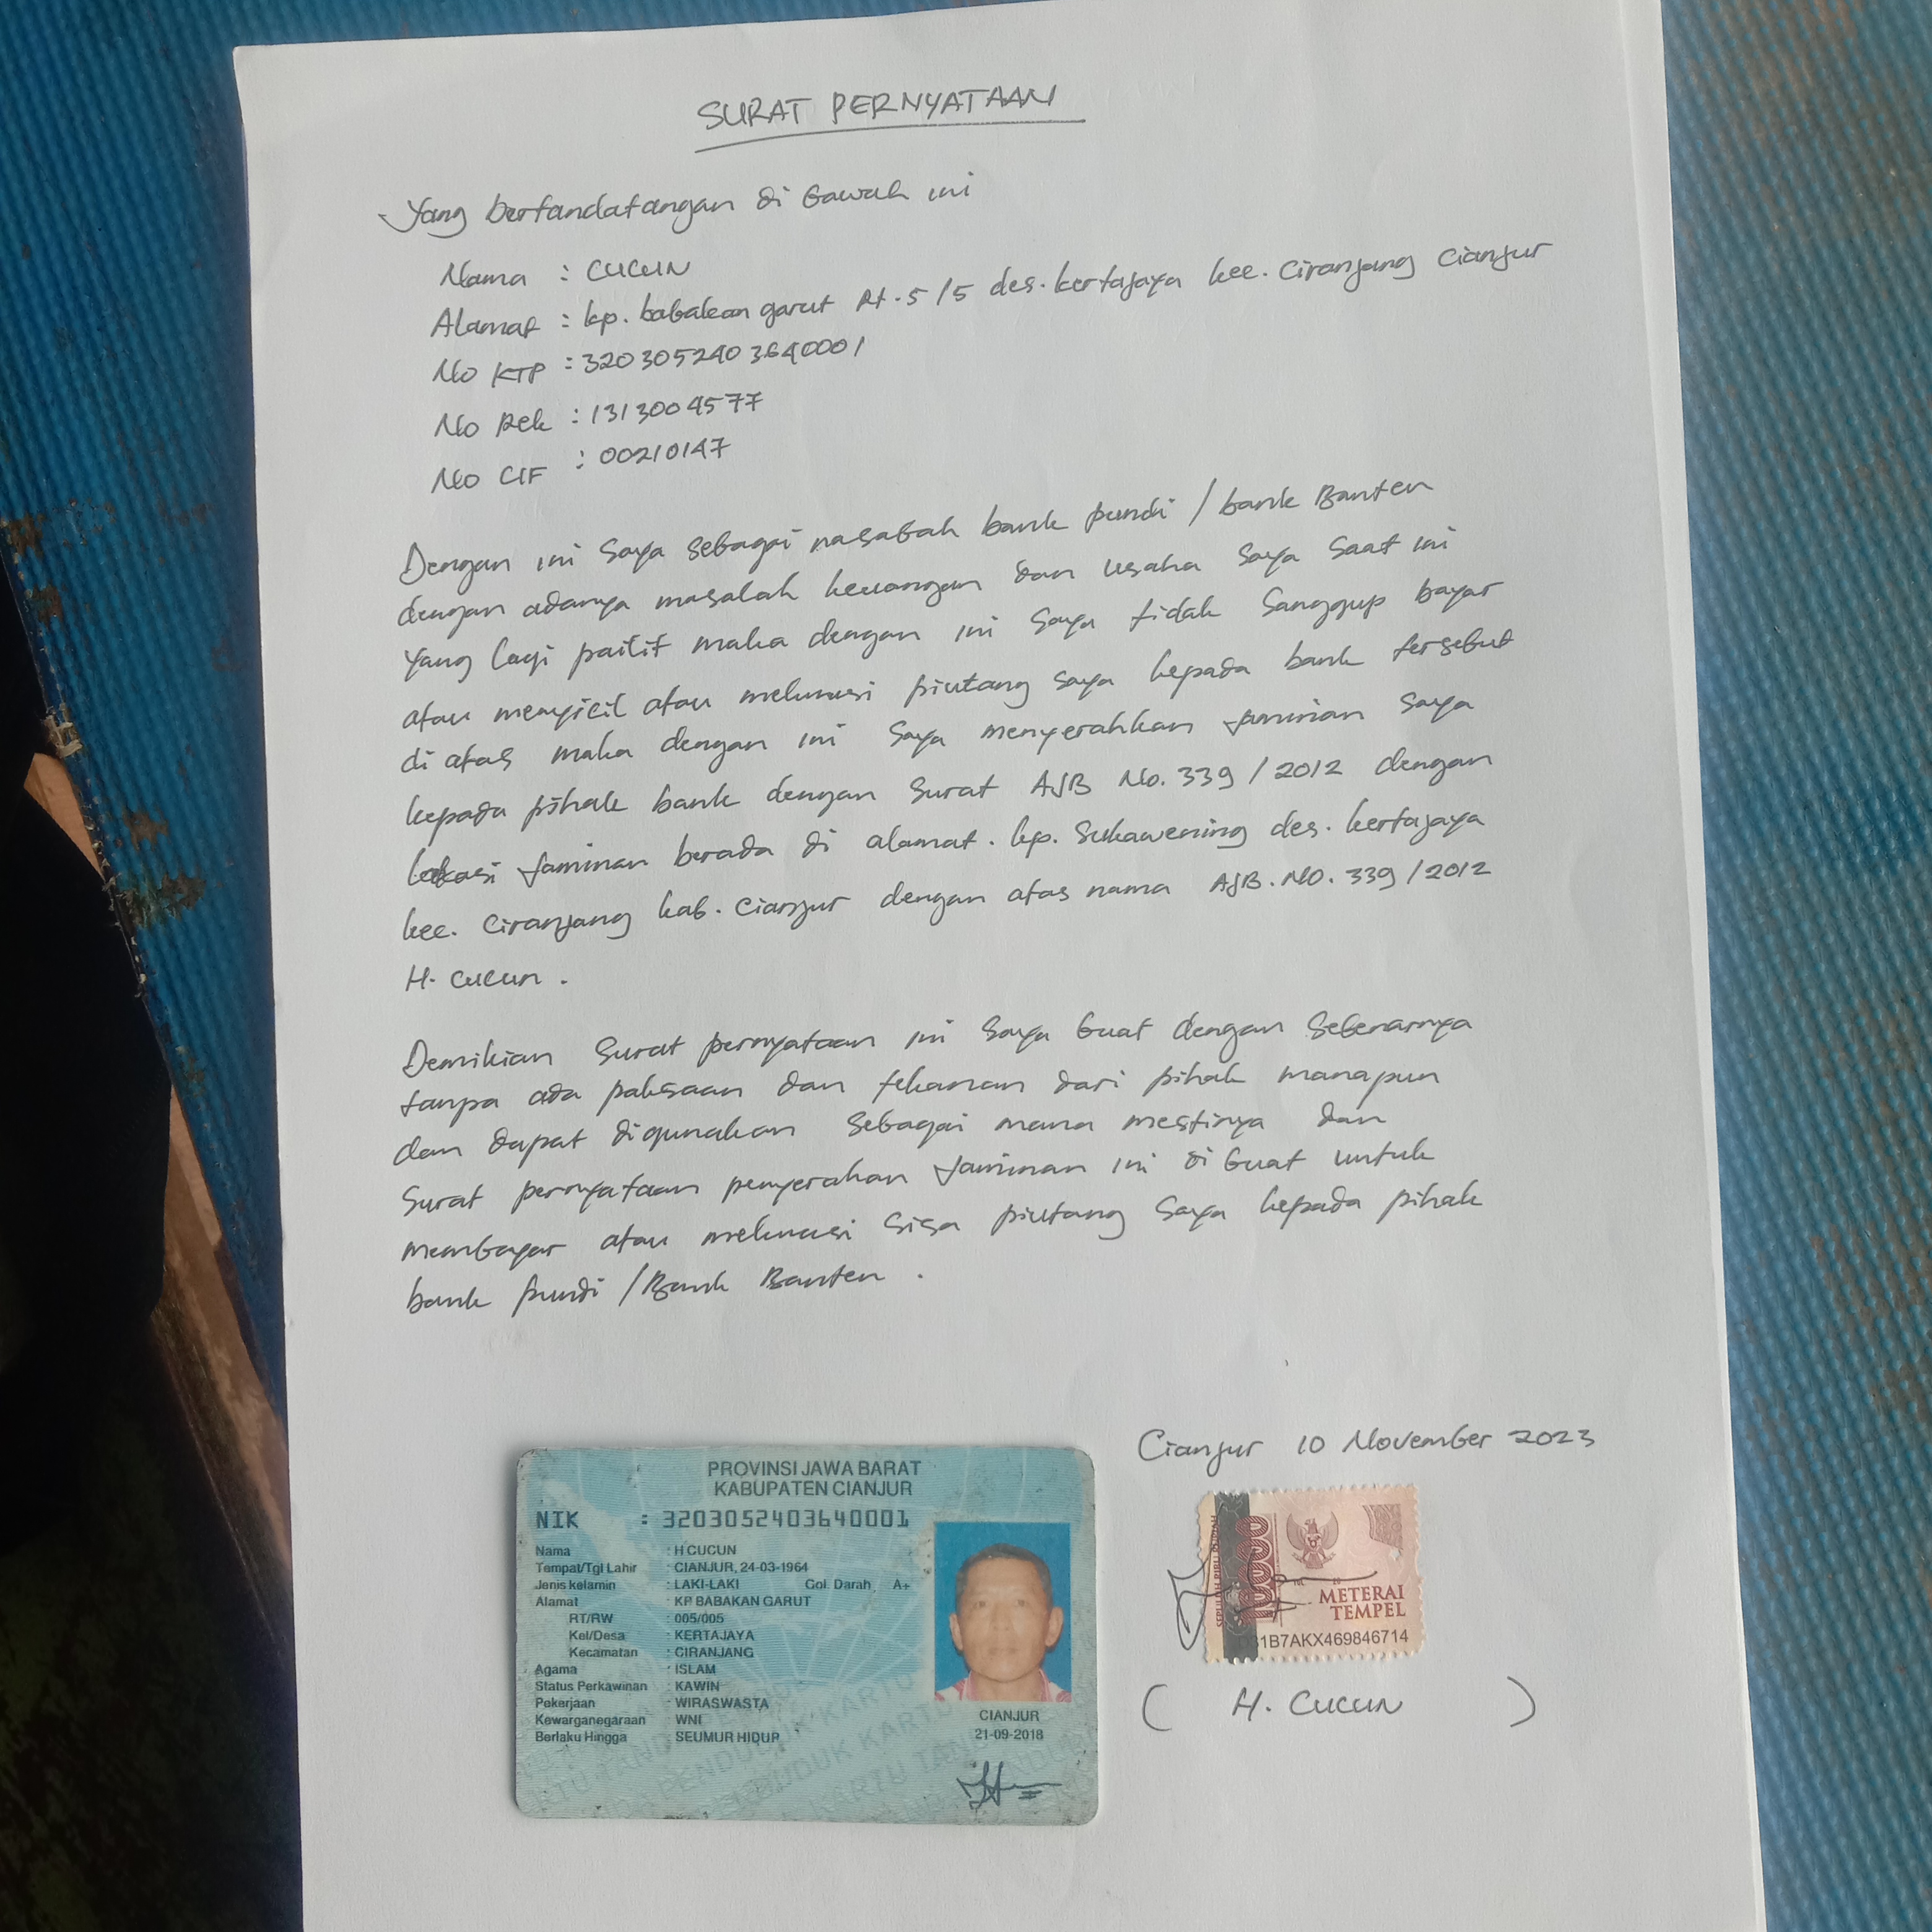 SURAT PERNYATAAN
Yang bertandatangan di bawah ini
Nama : CUCUN
Alamat : kp. babakan garut Rt. 5/5 des. kertajaya kec. Ciranjang Cianjur
No KTP : 3203052403640001
No Rek : 1313004577
No CIF : 00210147
Dengan ini saya sebagai nasabah bank pundi / bank Banten
dengan adanya masalah keuangan dan usaha saya saat ini
yang lagi pailit maka dengan ini saya tidak sanggup bayar
atau menyicil atau melunasi piutang saya kepada bank tersebut
di atas maka dengan ini saya menyerahkan jaminan saya
kepada pihak bank dengan surat AJB No. 339 / 2012 dengan
lokasi jaminan berada di alamat. kp. Sukawening des. kertajaya
kec. Ciranjang kab. Cianjur dengan atas nama AJB. NO. 339 / 2012
H. Cucun .
Demikian surat pernyataan ini saya buat dengan sebenarnya
tanpa ada paksaan dan tekanan dari pihak manapun
dan dapat digunakan sebagai mana mestinya dan
surat pernyataan penyerahan jaminan ini di buat untuk
membayar atau melunasi sisa piutang saya kepada pihak
bank pundi / Bank Banten .
Cianjur 10 November 2023
PROVINSI JAWA BARAT
KABUPATEN CIANJUR
NIK : 3203052403640001
Nama : H CUCUN
Tempat/Tgl Lahir : CIANJUR, 24-03-1964
Jenis kelamin : LAKI-LAKI Gol. Darah A+
Alamat : KP BABAKAN GARUT
RT/RW : 005/005
Kel/Desa : KERTAJAYA
Kecamatan : CIRANJANG
Agama : ISLAM
Status Perkawinan : KAWIN
Pekerjaan : WIRASWASTA
Kewarganegaraan : WNI
Berlaku Hingga : SEUMUR HIDUP
CIANJUR
21-09-2018
10000
METERAI
TEMPEL
31B7AKX469846714
( H. CUCUN )